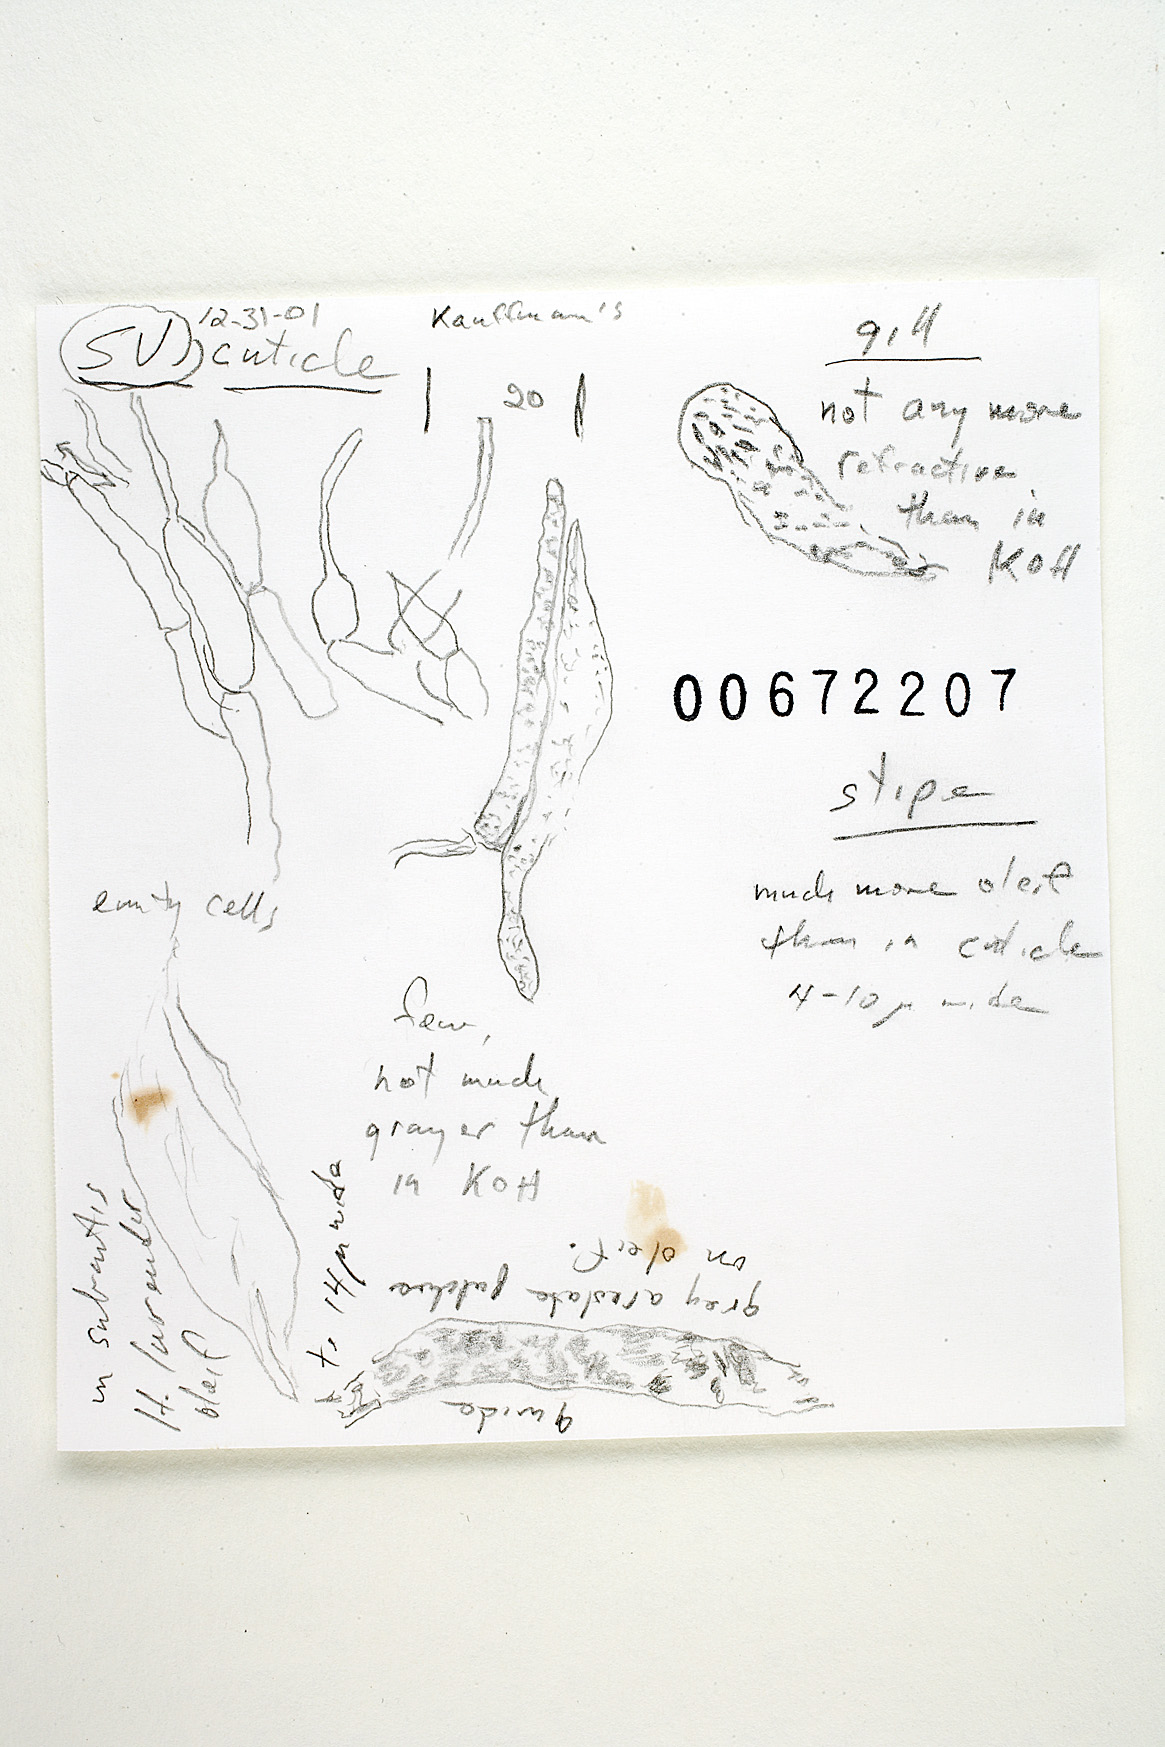 SV 12-31-01 Kauffman's
cuticle
20
gill
not any more
refractive
than in
KOH
00672207
stipe
much more oleif
than in cuticle
4-10 µ wide
emity cells
few,
not much
grayer than
in KOH
in subcutis
H. lavender
oleif
to 14µ wide
gray areolate patches
on oleif.
9 wide